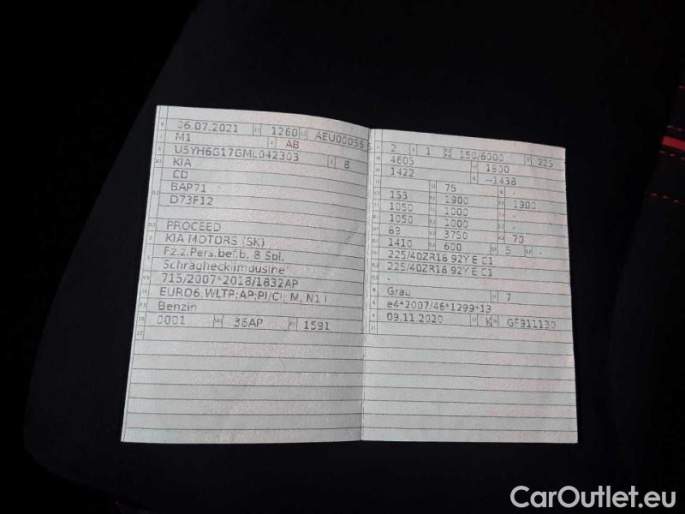 06.07.2021 1260 AEU00055
M1 AB
U5YH6G17GML042303 8
KIA
CD
BAP71
D73F12
PROCEED
KIA MOTORS (SK)
Fz.z.Pers.bef.b. 8 Spl.
Schräghecklimousine
715/2007*2018/1832AP
EURO6;WLTP;AP;PI/CI; M, N1 I
Benzin
0001 36AP 1591
2 1 150/6000 225
4605 1800
1422 -1438
75 -
153 1900 1900
1050 1000 -
1050 1000 -
63 3750 70
1410 600 5 -
225/40ZR18 92Y E C1
225/40ZR18 92Y E C1
-
Grau 7
e4*2007/46*1299*13
09.11.2020 K GF911130
CarOutlet.eu